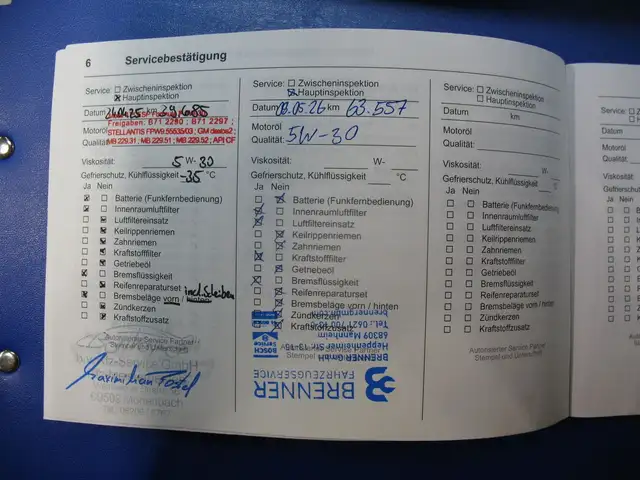 6 Servicebestätigung
Service: Zwischeninspektion
Hauptinspektion
Datum 24.04.25 km 29.685
Freigaben: B71 2290 ; B71 2297 ;
Motoröl STELLANTIS FPW9.55535/03 ; GM dexos2 ;
Qualität: MB 229.31 ; MB 229.51 ; MB 229.52 ; API CF
Viskosität: 5 W- 30
Gefrierschutz, Kühlflüssigkeit -35 °C
Ja Nein
Batterie (Funkfernbedienung)
Innenraumluftfilter
Luftfiltereinsatz
Keilrippenriemen
Zahnriemen
Kraftstofffilter
Getriebeöl
Bremsflüssigkeit
Reifenreparaturset incl. Scheiben
Bremsbeläge vorn / hinten
Zündkerzen
Kraftstoffzusatz
Autorisierter Service Partner
Maximilian
Service: Zwischeninspektion
Hauptinspektion
Datum 08.05.26 km 63.557
Motoröl
Qualität: 5W-30
Viskosität: W-
Gefrierschutz, Kühlflüssigkeit °C
Ja Nein
Batterie (Funkfernbedienung)
Innenraumluftfilter
Luftfiltereinsatz
Keilrippenriemen
Zahnriemen
Kraftstofffilter
Getriebeöl
Bremsflüssigkeit
Reifenreparaturset
Bremsbeläge vorn / hinten
Zündkerzen
Kraftstoffzusatz
BRENNER
FAHRZEUGSERVICE
BRENNER GmbH
Heppenheimer Str. 13-15
68309 Mannheim
brennergmbh.com
BOSCH
Service
Service: Zwischeninspektion
Hauptinspektion
Datum km
Motoröl
Qualität:
Viskosität: W-
Gefrierschutz, Kühlflüssigkeit °C
Ja Nein
Batterie (Funkfernbedienung)
Innenraumluftfilter
Luftfiltereinsatz
Keilrippenriemen
Zahnriemen
Kraftstofffilter
Getriebeöl
Bremsflüssigkeit
Reifenreparaturset
Bremsbeläge vorn / hinten
Zündkerzen
Kraftstoffzusatz
Autorisierter Service Partner
Stempel und Unterschrift